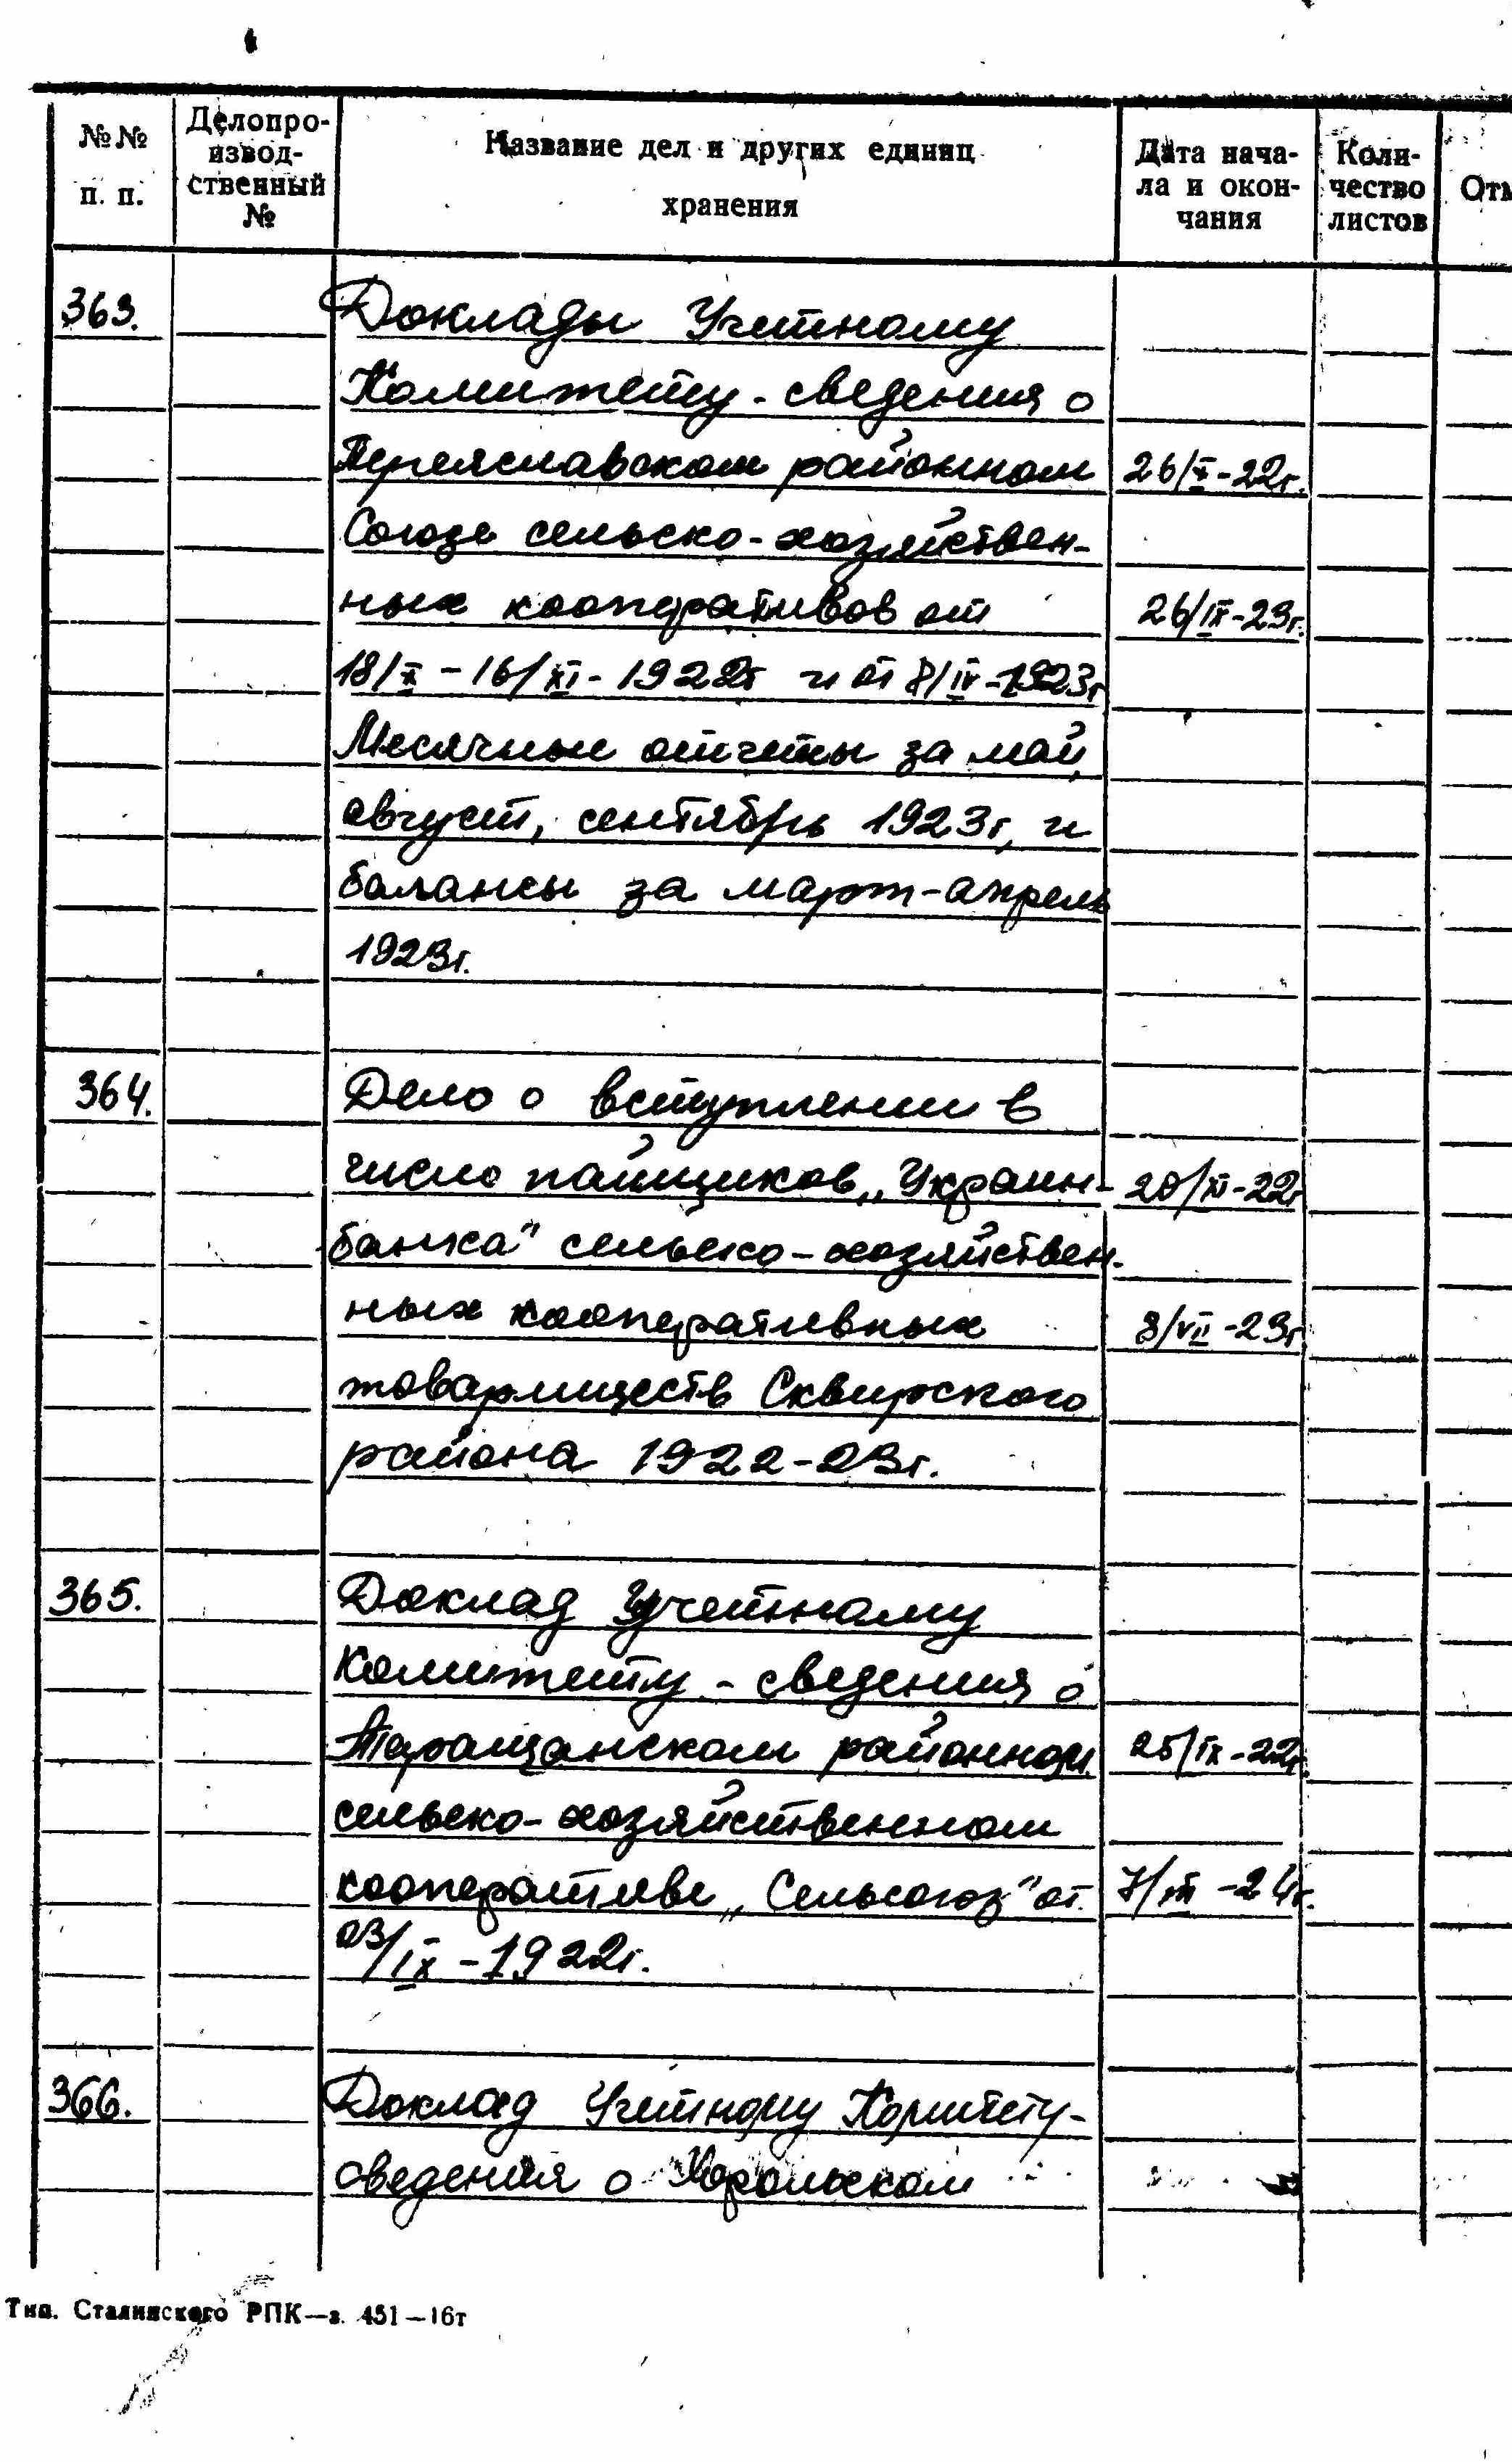 №№ п. п.
Делопро-
извод-
ственный
№
Название дел и других единиц
хранения
Дата нача-
ла и окон-
чания
Коли-
чество
листов
Отм
363. Доклады Учетному
Комитету - сведения о
Переяславском районном 26/X-22г.
Союзе сельско-хозяйствен-
ных кооперативов от 26/IX-23г.
18/X - 16/XI - 1922г и от 8/IV-1923г
Месячные отчеты за май,
август, сентябрь 1923г, и
балансы за март-апрель
1923г.
364. Дело о вступлении в
число пайщиков „Украин- 20/XI-22г
банка" сельско-хозяйствен-
ных кооперативных 8/VII-23г
товариществ Сквирского
района 1922-23г.
365. Доклад Учетному
Комитету - сведения о
Таращанском районном 25/IX-22г.
сельско-хозяйственном
кооперативе „Сельсоюз" от 7/III-24г.
23/IX-1922г.
366. Доклад Учетному Комитету-
сведения о Хорольском
Тип. Сталинского РПК—з. 451—16т